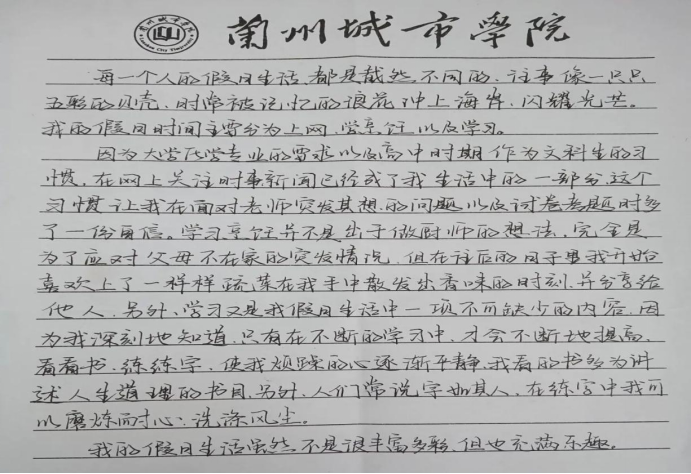 蘭州城市學院
每一个人的假日生活都是截然不同的,往事像一只只
五彩的贝壳,时常被记忆的浪花冲上海岸,闪耀光芒。
我的假日时间主要分为上网,学烹饪以及学习。
因为大学所学专业的要求以及高中时期作为文科生的习
惯,在网上关注时事新闻已经成了我生活中的一部分,这个
习惯让我在面对老师突发其想的问题以及试卷考题时多
了一份自信。学习烹饪并不是出于做厨师的想法,完全是
为了应对父母不在家的突发情况,但在往后的日子里我开始
喜欢上了一样样蔬菜在我手中散发出香味的时刻,并分享给
他人。另外,学习又是我假日生活中一项不可缺少的内容,因
为我深刻地知道,只有在不断的学习中,才会不断地提高,
看看书,练练字,使我烦躁的心逐渐平静,我看的书多为讲
述人生道理的书目,另外,人们常说字如其人,在练字中我可
以磨炼耐心,洗涤风尘。
我的假日生活虽然不是很丰富多彩,但也充满乐趣。